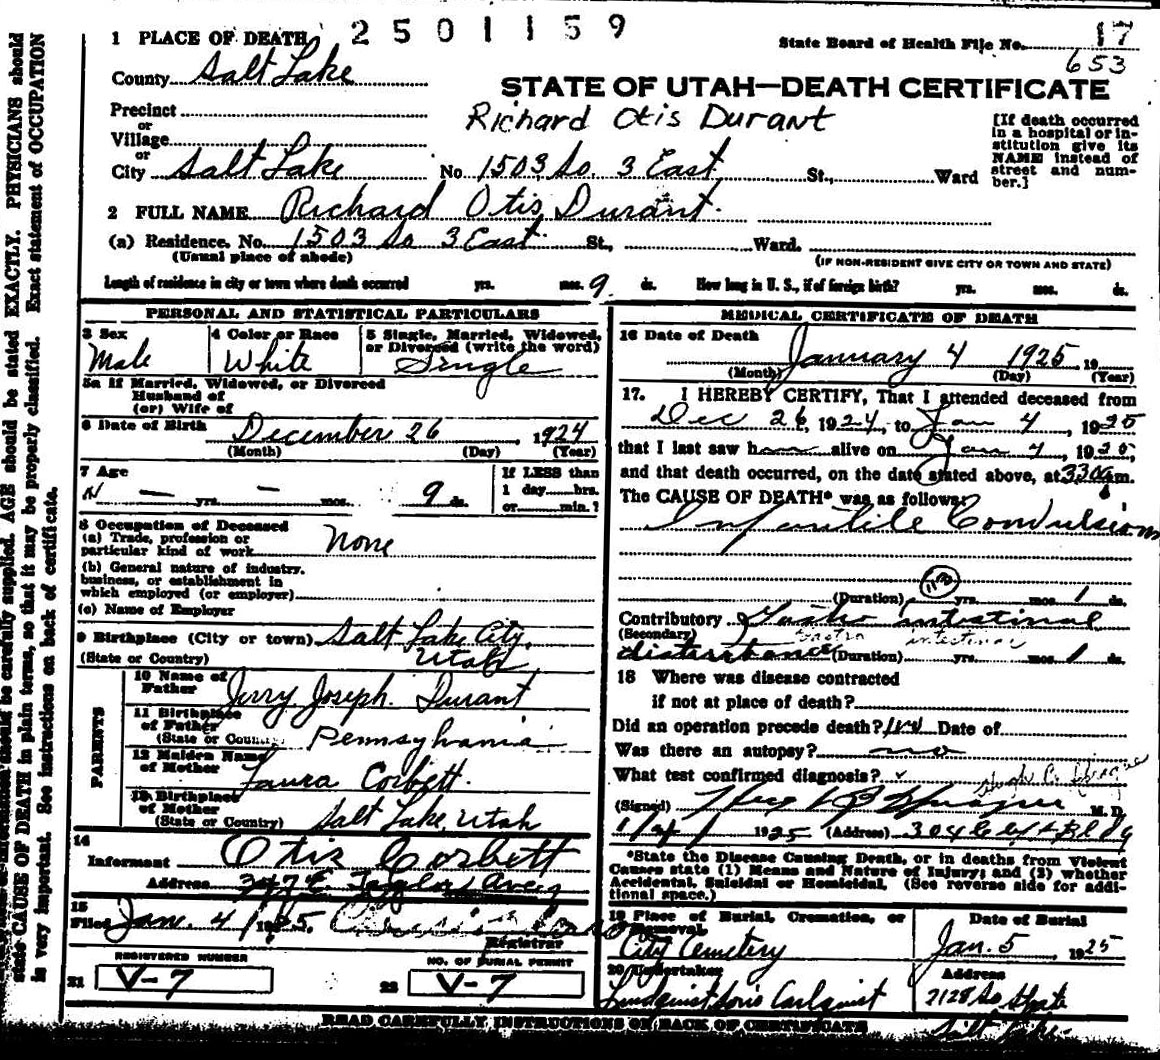 2501159
1 PLACE OF DEATH
State Board of Health File No. 17
653
County Salt Lake
STATE OF UTAH—DEATH CERTIFICATE
Richard Otis Durant
Precinct
or
Village
or
City Salt Lake No 1503 So. 3 East St., Ward
[If death occurred
in a hospital or in-
stitution give its
NAME instead of
street and num-
ber.]
2 FULL NAME Richard Otis Durant.
(a) Residence. No. 1503 So 3 East St., Ward.
(Usual place of abode)
(IF NON-RESIDENT GIVE CITY OR TOWN AND STATE)
Length of residence in city or town where death occurred yrs. mos. 9 ds. How long in U. S., if of foreign birth? yrs. mos. ds.
PERSONAL AND STATISTICAL PARTICULARS
3 Sex
Male
4 Color or Race
White
5 Single, Married, Widowed,
or Divorced (write the word)
Single
5a If Married, Widowed, or Divorced
Husband of
(or) Wife of
6 Date of Birth December 26, 1924
(Month) (Day) (Year)
7 Age
— yrs. — mos. 9 ds.
If LESS than
1 day hrs.
or min.?
8 Occupation of Deceased
(a) Trade, profession or
particular kind of work None
(b) General nature of industry.
business, or establishment in
which employed (or employer)
(c) Name of Employer
9 Birthplace (City or town) Salt Lake City,
(State or Country) Utah
PARENTS
10 Name of
Father Jerry Joseph Durant
11 Birthplace
of Father
(State or Country) Pennsylvania
12 Maiden Name
of Mother Laura Corbett.
13 Birthplace
of Mother
(State or Country) Salt Lake, Utah
14
Informant Otis Corbett
Address 347 E.
15
Filed Jan. 4 1925.
Registrar
REGISTERED NUMBER
21 V-7
NO. OF BURIAL PERMIT
22 V-7
MEDICAL CERTIFICATE OF DEATH
16 Date of Death
January 4 1925 19
(Month) (Day) (Year)
17. I HEREBY CERTIFY, That I attended deceased from
Dec 26, 1924, to Jan 4, 1925
that I last saw h alive on Jan 4, 1925,
and that death occurred, on the date stated above, at 330 a m.
The CAUSE OF DEATH* was as follows:
Infantile Convulsions
(Duration) yrs. mos. 1 ds.
Contributory Gastro intestinal
(Secondary) Gastro intestinal
disturbance (Duration) yrs. mos. 1 ds.
18 Where was disease contracted
if not at place of death?
Did an operation precede death? Date of
Was there an autopsy? no
What test confirmed diagnosis?
(Signed) M. D.
1925 (Address)
*State the Disease Causing Death, or in deaths from Violent
Causes state (1) Means and Nature of Injury; and (2) whether
Accidental, Suicidal or Homicidal. (See reverse side for addi-
tional space.)
19 Place of Burial, Cremation, or
Removal
City Cemetery
Date of Burial
Jan. 5 1925
20 Undertaker
Carlquist
Address
2128 So State
Salt Lake
READ CAREFULLY INSTRUCTIONS ON BACK OF CERTIFICATE
should be carefully supplied. AGE should be stated EXACTLY. PHYSICIANS should
state CAUSE OF DEATH in plain terms, so that it may be properly classified. Exact statement of OCCUPATION
is very important. See instructions on back of certificate.